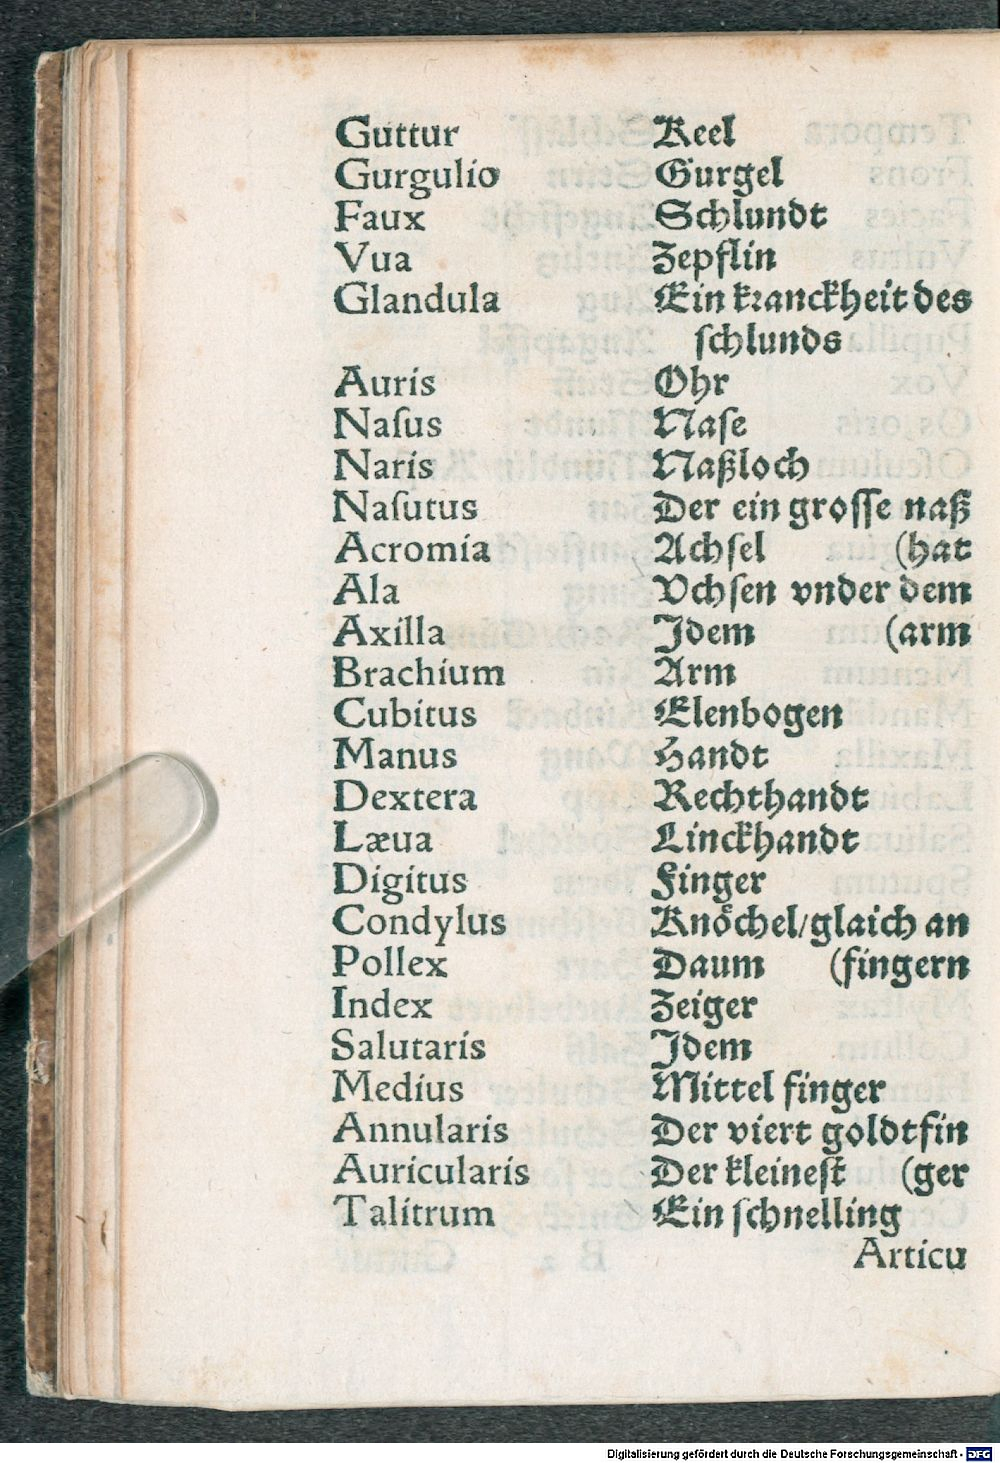 Guttur Keel
Gurgulio Gurgel
Faux Schlundt
Vua Zepflin
Glandula Ein kranckheit des
schlunds
Auris Ohr
Naſus Naſe
Naris Naßloch
Naſutus Der ein groſſe naß
Acromia Achſel (hat
Ala Vchſen vnder dem
Axilla Idem (arm
Brachium Arm
Cubitus Elenbogen
Manus Handt
Dextera Rechthandt
Læua Linckhandt
Digitus Finger
Condylus Knöchel/glaich an
Pollex Daum (fingern
Index Zeiger
Salutaris Idem
Medius Mittel finger
Annularis Der viert goldtfin
Auricularis Der kleineſt (ger
Talitrum Ein ſchnelling
Articu
Digitalisierung gefördert durch die Deutsche Forschungsgemeinschaft - DFG